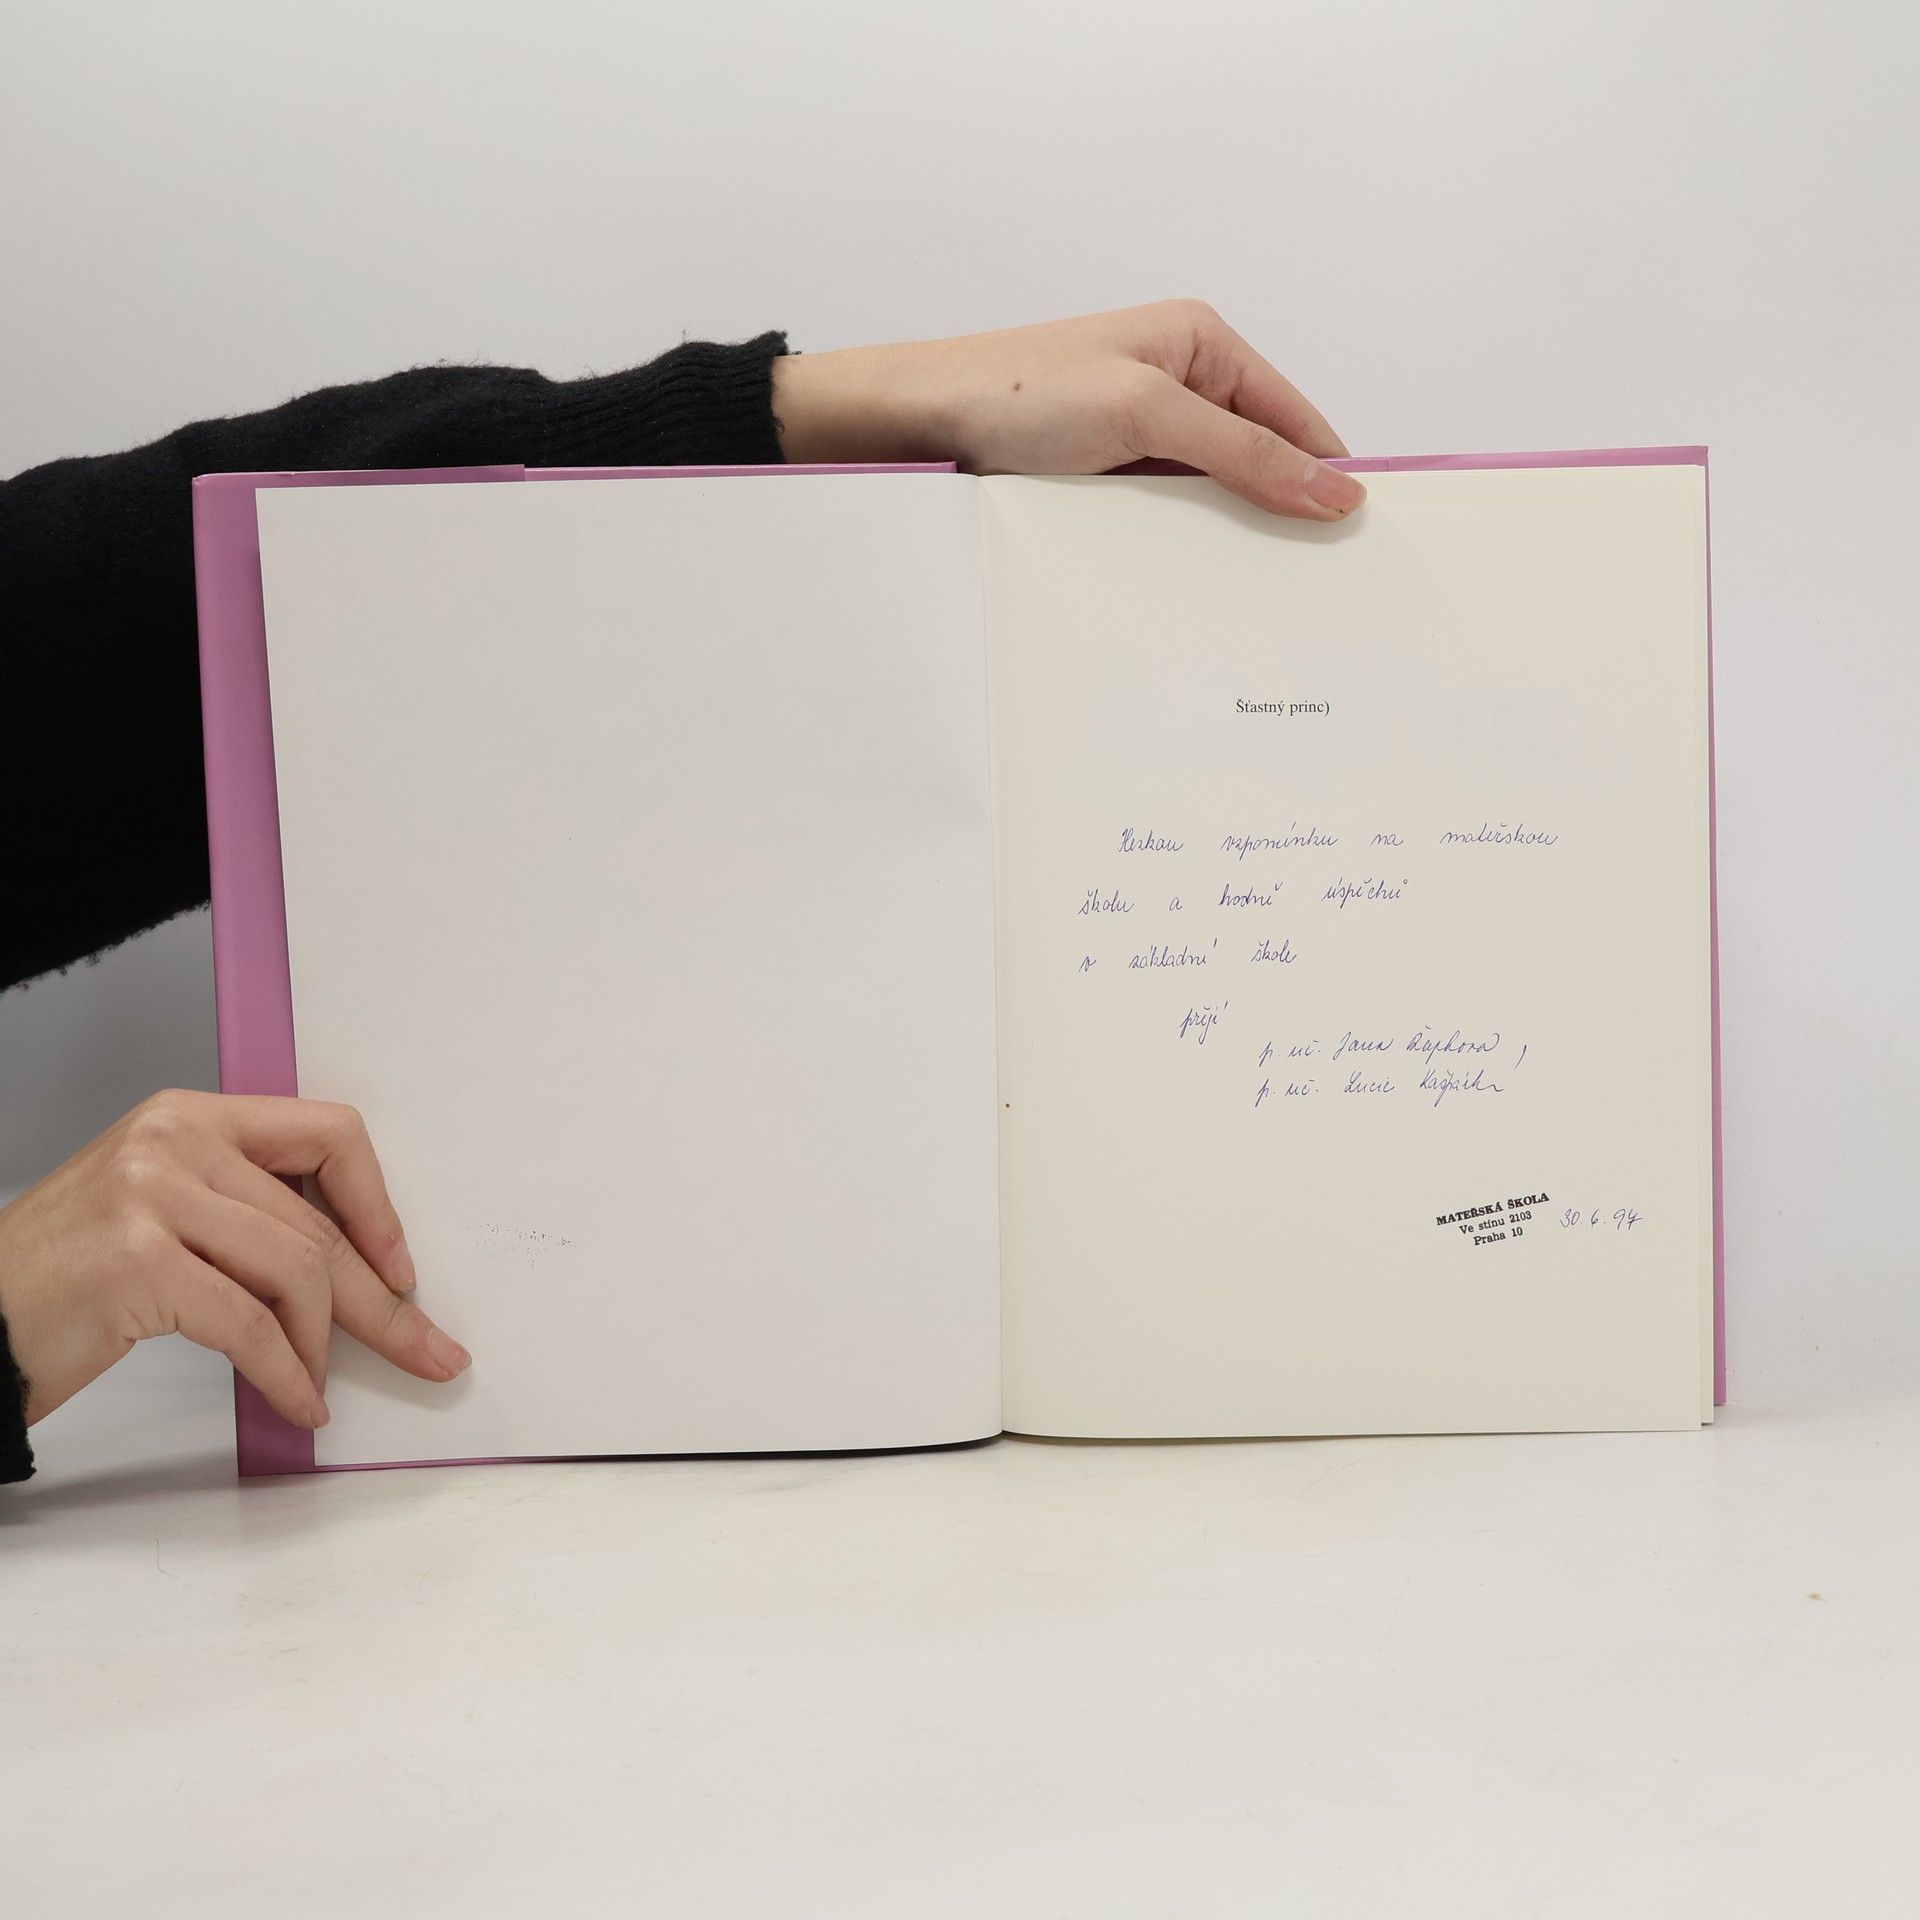 Šťastný princ)
Hezkou vzpomínku na mateřskou
školu a hodně úspěchů
v základní škole
přejí
p. uč. Jana
p. uč. Lucie
MATEŘSKÁ ŠKOLA
Ve stínu 2103
Praha 10
30. 6. 97